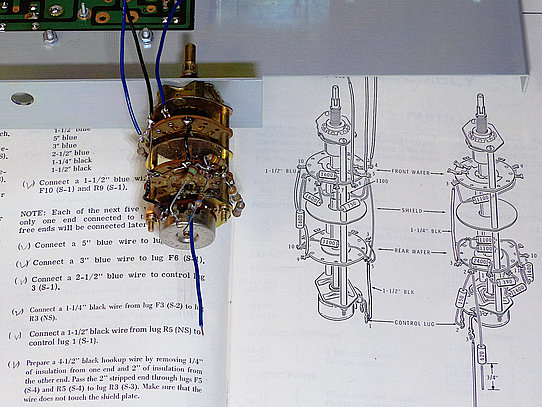 1-1/2" blue
5" blue
3" blue
2-1/2" blue
1-1/4" black
1-1/2" black
Connect a 1-1/2" blue
F10 (S-1) and R9 (S-1).
NOTE: Each of the next five
only one end connected to
free ends will be connected later
Connect a 5" blue wire to
Connect a 3" blue wire to lug F6 (S-1).
Connect a 2-1/2" blue wire to control
3 (S-1).
Connect a 1-1/4" black wire from lug F3 (S-2) to
R3 (NS).
Connect a 1-1/2" black wire from lug R5 (NS) to
control lug 1 (S-1).
Prepare a 4-1/2" black hookup wire by removing 1/4"
of insulation from one end and 2" of insulation from
the other end. Pass the 2" stripped end through lugs F5
(S-4) and R5 (S-4) to lug R3 (S-3). Make sure that the
wire does not touch the shield plate.
1-1/2" BLU
FRONT WAFER
SHIELD
1-1/4" BLK
REAR WAFER
1-1/2" BLK
CONTROL LUG
3/4"